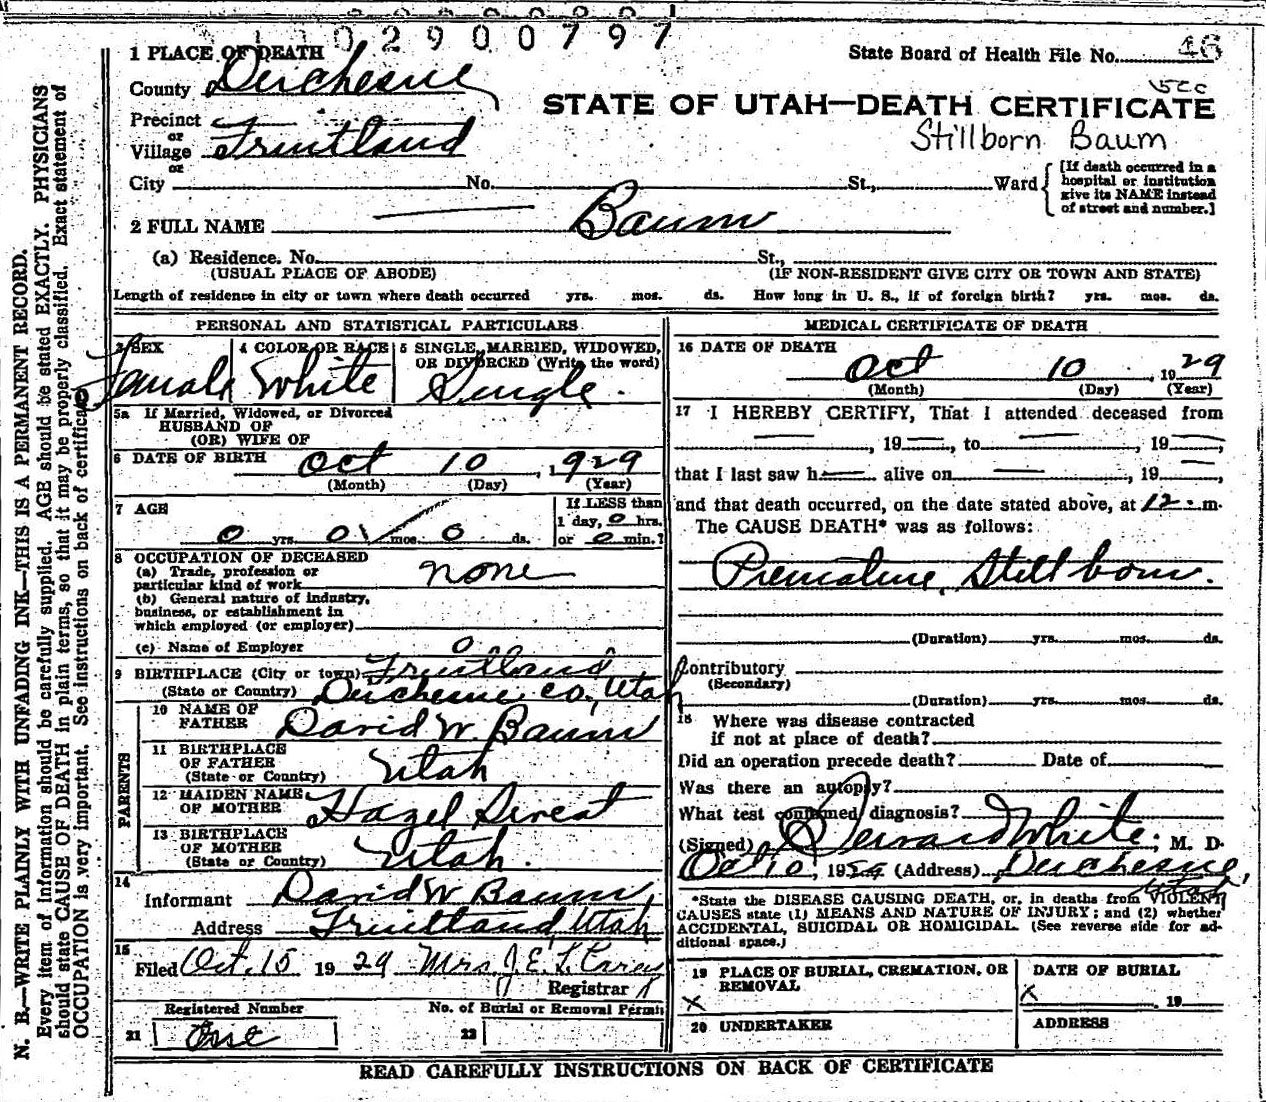 0 2 9 0 0 7 9 7
1 PLACE OF DEATH
State Board of Health File No. 46
County Duchesne
STATE OF UTAH—DEATH CERTIFICATE
Precinct
or
Village Fruitland
Stillborn Baum
or
City No. St., Ward
[If death occurred in a
hospital or institution
give its NAME instead
of street and number.]
2 FULL NAME Baum
(a) Residence. No. St.,
(USUAL PLACE OF ABODE) (IF NON-RESIDENT GIVE CITY OR TOWN AND STATE)
Length of residence in city or town where death occurred yrs. mos. ds. How long in U. S., if of foreign birth? yrs. mos. ds.
PERSONAL AND STATISTICAL PARTICULARS
3 SEX
Female
4 COLOR OR RACE
White
5 SINGLE, MARRIED, WIDOWED,
OR DIVORCED (Write the word)
Single.
5a If Married, Widowed, or Divorced
HUSBAND OF
(OR) WIFE OF
6 DATE OF BIRTH Oct 10, 1929
(Month) (Day) (Year)
7 AGE
0 yrs. 0 mos. 0 ds.
If LESS than
1 day, 0 hrs.
or 0 min.?
8 OCCUPATION OF DECEASED
(a) Trade, profession or
particular kind of work none
(b) General nature of industry,
business, or establishment in
which employed (or employer)
(c) Name of Employer 0
9 BIRTHPLACE (City or town) Fruitland
(State or Country) Duchesne Co., Utah
PARENTS
10 NAME OF
FATHER David W. Baum
11 BIRTHPLACE
OF FATHER
(State or Country) Utah
12 MAIDEN NAME
OF MOTHER Hazel Sweat
13 BIRTHPLACE
OF MOTHER
(State or Country) Utah.
14
Informant David W Baum,
Address Fruitland, Utah
15
Filed Oct. 15 1929 Mrs. J. E. L. Carey
Registrar
Registered Number No. of Burial or Removal Permit
21 One 22
MEDICAL CERTIFICATE OF DEATH
16 DATE OF DEATH
Oct 10, 1929
(Month) (Day) (Year)
17 I HEREBY CERTIFY, That I attended deceased from
, 19 , to , 19 ,
that I last saw h alive on , 19 ,
and that death occurred, on the date stated above, at 12 m.
The CAUSE DEATH* was as follows:
Premature, Stillborn.
(Duration) yrs. mos. ds.
Contributory
(Secondary)
(Duration) yrs. mos. ds.
18 Where was disease contracted
if not at place of death?
Did an operation precede death? Date of
Was there an autopsy?
What test confirmed diagnosis?
(Signed) White; M. D.
Oct 10, 1929 (Address) Duchesne,
Utah
*State the DISEASE CAUSING DEATH, or, in deaths from VIOLENT
CAUSES state (1) MEANS AND NATURE OF INJURY; and (2) whether
ACCIDENTAL, SUICIDAL OR HOMICIDAL. (See reverse side for ad-
ditional space.)
19 PLACE OF BURIAL, CREMATION, OR
REMOVAL
X
DATE OF BURIAL
X , 19
20 UNDERTAKER
ADDRESS
READ CAREFULLY INSTRUCTIONS ON BACK OF CERTIFICATE
N. B.—WRITE PLAINLY WITH UNFADING INK—THIS IS A PERMANENT RECORD.
Every item of information should be carefully supplied. AGE should be stated EXACTLY. PHYSICIANS
should state CAUSE OF DEATH in plain terms, so that it may be properly classified. Exact statement of
OCCUPATION is very important. See instructions on back of certificate.